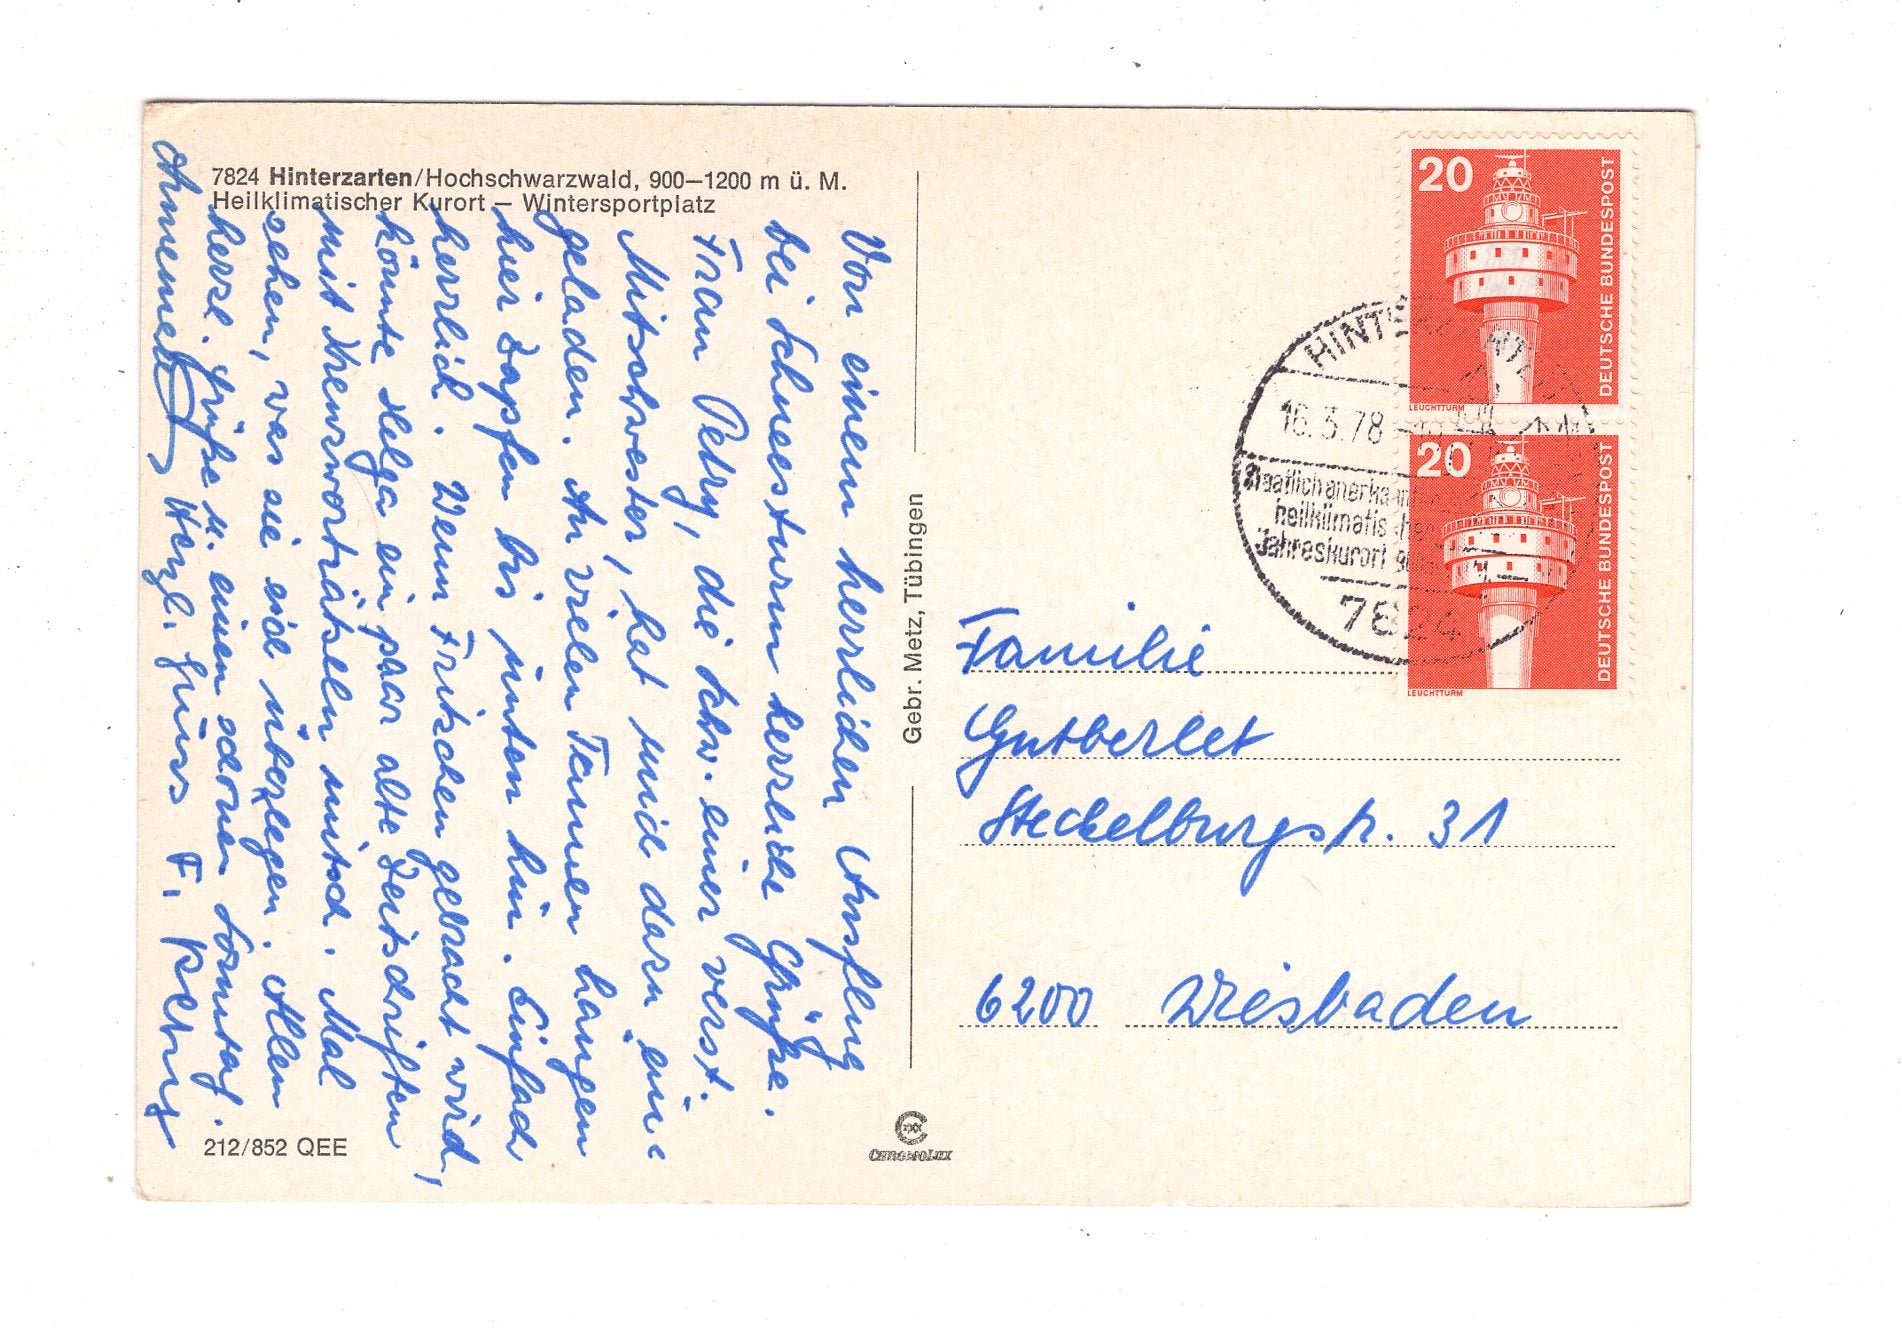 7824 Hinterzarten/Hochschwarzwald, 900–1200 m ü. M.
Heilklimatischer Kurort – Wintersportplatz
Von einem herrlichen Ausflug
bei Schneesturm herzliche Grüße.
Frau Petry, die Schw. einer verst.
Mitschwester, hat mich dazu ein-
geladen. An vielen Tannen hangen
hier Zapfen bis unten hin. Einfach
herrlich. Wenn Fritzchen gebracht wird,
könnte Helga ein paar alte Zeitschriften
mit Kreuzworträtseln mitsch. Mal
sehen, was sie sich überlegen. Allen
herzl. Grüße u. einen schönen Sonntag.
Annemett
Herzl. Gruss F. Petry
212/852 QEE
Gebr. Metz, Tübingen
CHROMOLUX
20
DEUTSCHE BUNDESPOST
LEUCHTTURM
20
DEUTSCHE BUNDESPOST
LEUCHTTURM
HINTERZARTEN
16.3.78
Staatlich anerkannt
heilklimatischer
Jahreskurort
7824
Familie
Gutberlet
Steckelburgstr. 31
6200 Wiesbaden